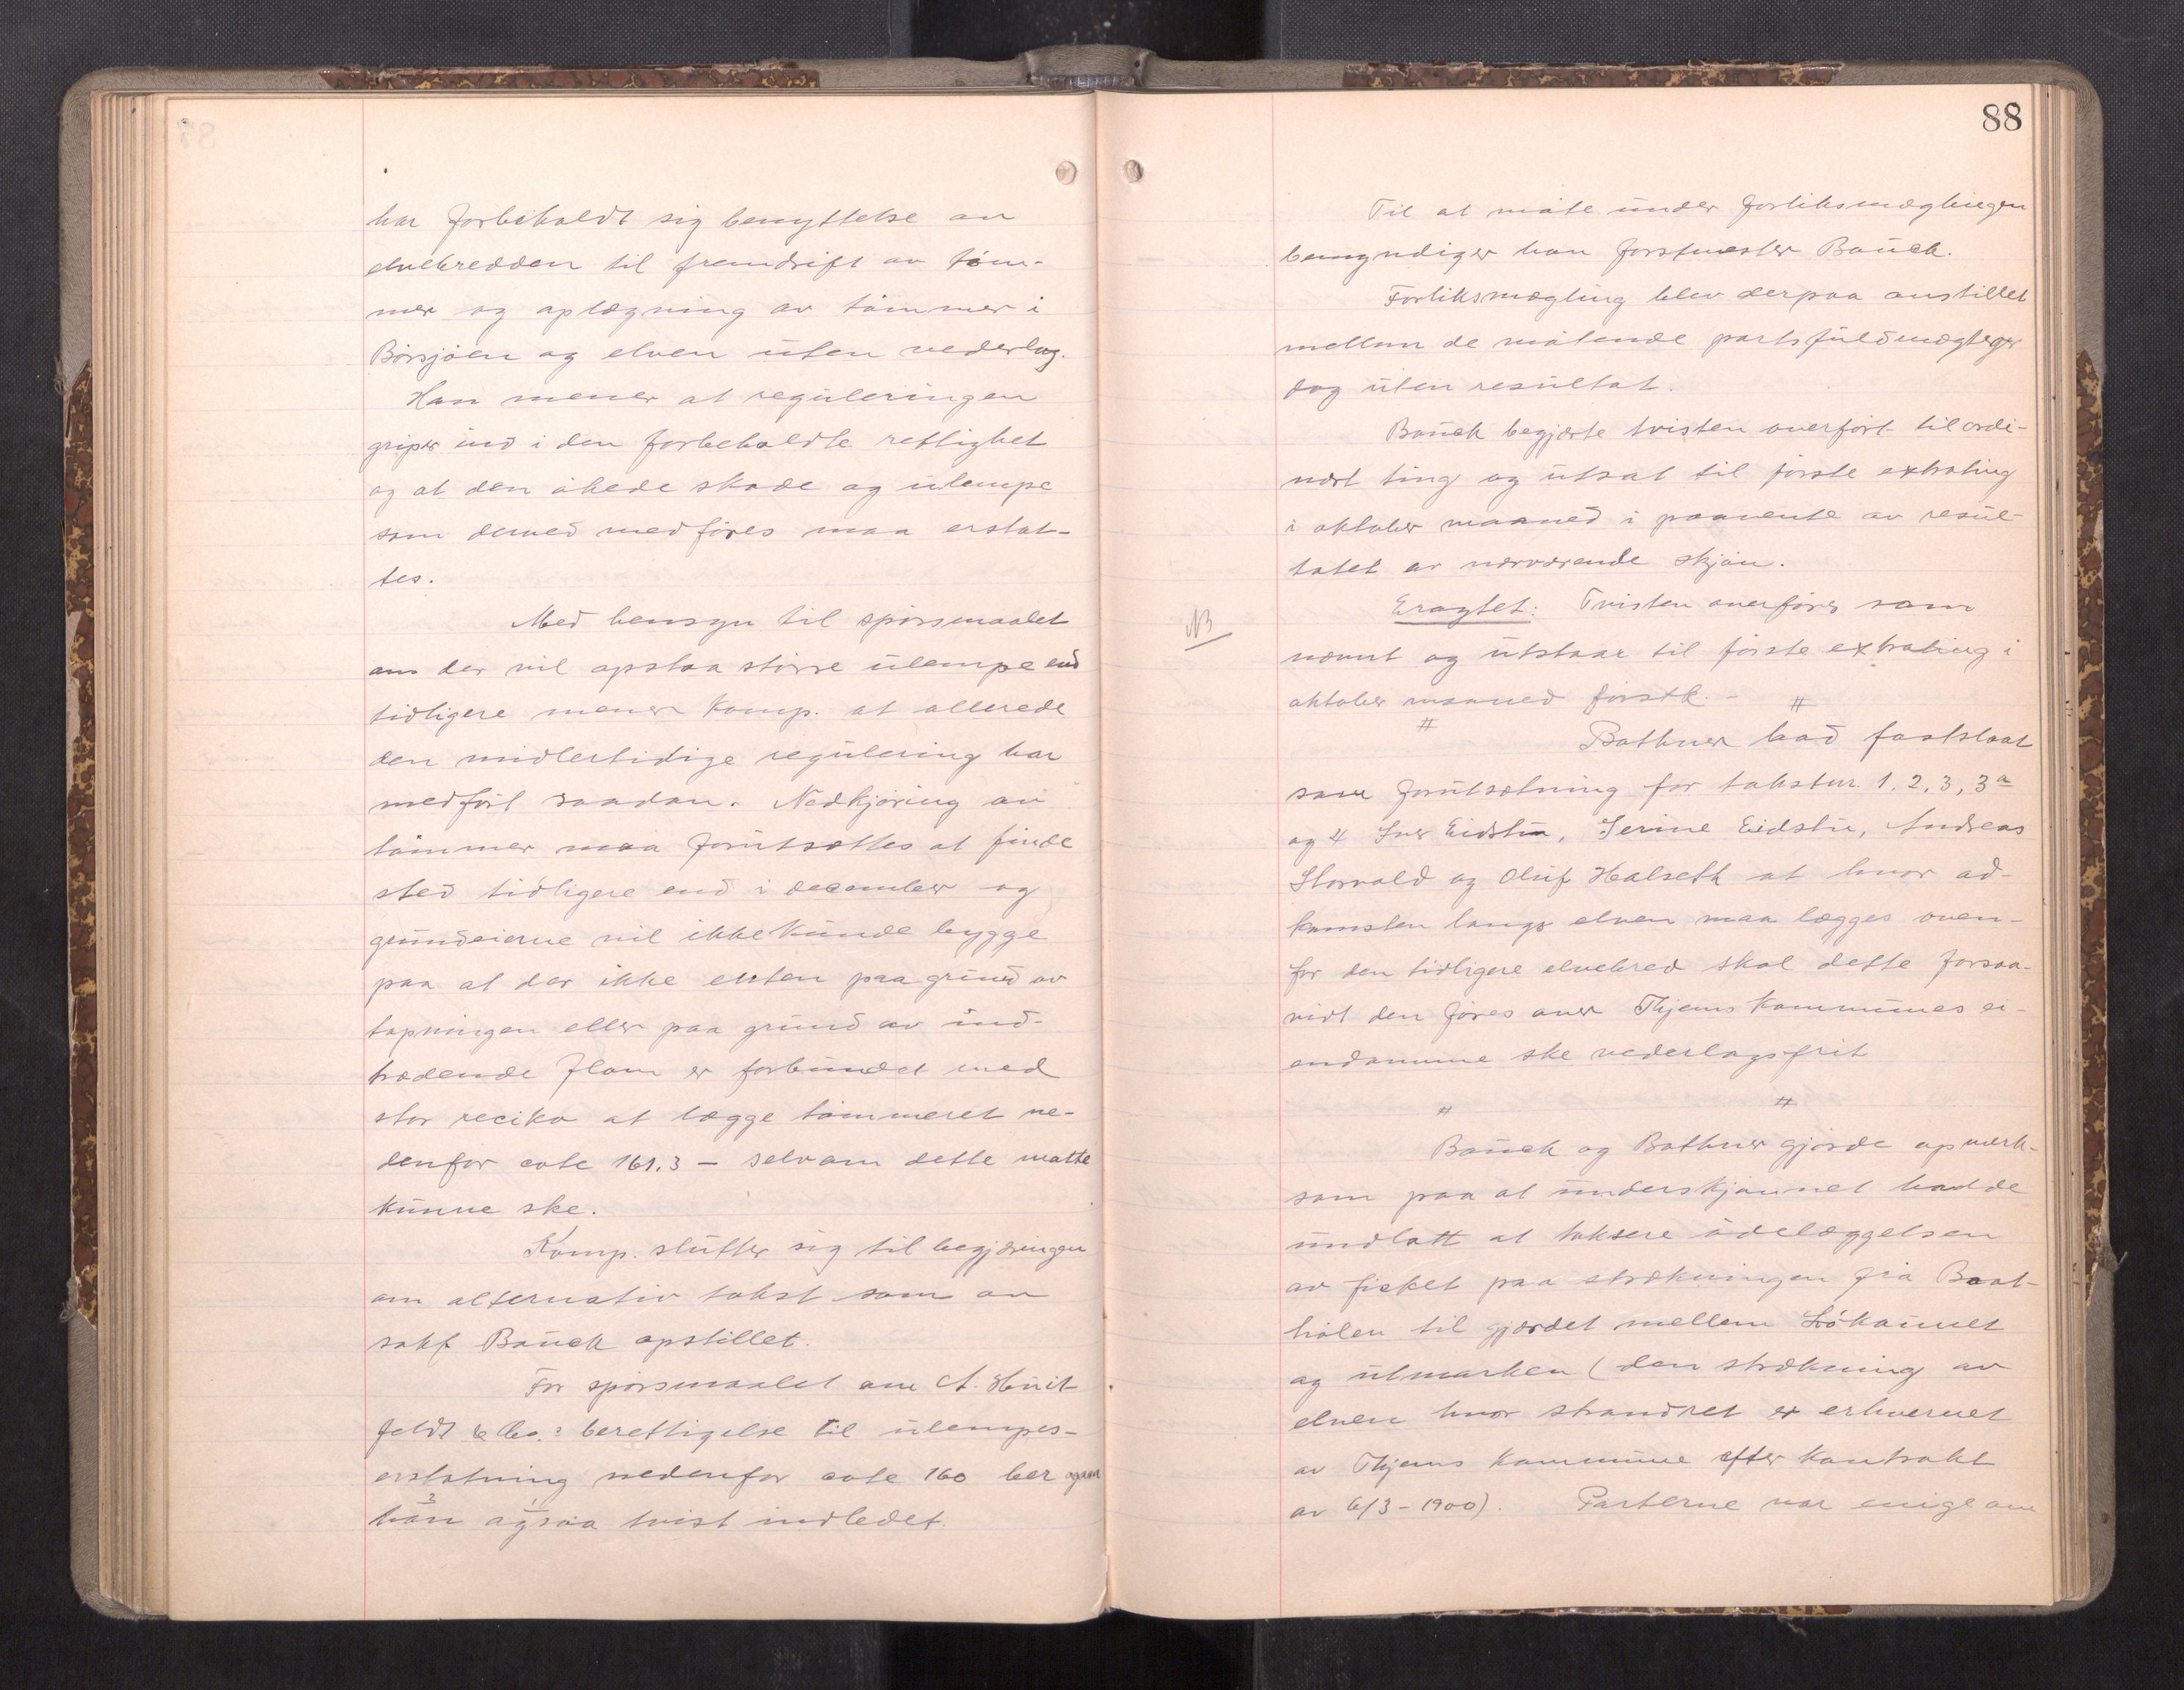 har forbeholdt sig benyttelse av
elvebredden til fremdrift av töm-
mer og oplægning av tömmer i
Börsjöen og elven uten vederlag.
Han mener at reguleringen
griper ind i den forbeholdte rettighet
og at den ökede skade og ulempe
som derved medföres maa erstat-
tes.
Med hensyn til spörsmaalet
om der vil opstaa större ulempe end
tidligere mener Komp. at allerede
den midlertidige regulering har
medfört saadan. Nedkjöring av
tömmer maa forutsættes at finde
sted tidligere end i december og
grundeierne vil ikke kunde bygge
paa at der ikke enten paa grund av
tapningen eller paa grund av ind-
trædende flom er forbundet med
stor reciko at lægge tömmeret ne-
denfor cote 161.3 – selvom dette matte
kunne ske.
Komp. slutter sig til begjæringen
om alternativ takst som av
sakf Bauck opstillet.
For spörsmaalet om A. Huit-
feldt & Co.s berettigelse til ulempes-
erstatning nedenfor cote 160 ber
han ogsaa tvist indledet.
88
Til at möte under forliksmæglingen
bemyndiger han forstmester Bauck.
Forliksmægling blev derpaa anstillet
mellem de mötende partsfuldmægtiger
dog uten resultat.
Bauck begjærte tvisten overfört til ordi-
nært ting og utsat til förste extrating
i oktober maaned i paavente av resul-
tatet av nærværende skjön.
NB
Eragtet: Tvisten overföres som
nævnt og utstaar til förste extrating i
oktober maaned förstk. – #
# Bathner bad fastslaat
som forutsætning for takstnr. 1, 2, 3, 3a
og 4 Iver Eidstu, Serine Eidstu, Andreas
Storvold og Oluf Halseth at hvor ad-
komsten langs elven maa lægges oven-
for den tidligere elvebred skal dette forsaa-
vidt den föres over Thjems kommunes ei-
endomme ske vederlagsfrit
# #
Bauck og Bathner gjorde opmerk-
som paa at underskjönnet hadde
undlatt at taksere ödelæggelsen
av fisket paa strækningen fra Baat-
hölen til gjærdet mellem Lökaunet
og utmarken (den strækning av
elven hvor strandret er erhvervet
av Thjems Kommune efter kontrakt
av 6/3 – 1900). Parterne var enige om